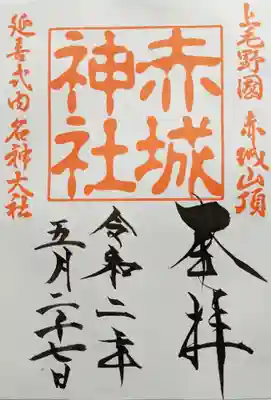 上毛野國 赤城山頂
赤城
神社
延喜式内名神大社
奉拝
令和二年
五月二十七日